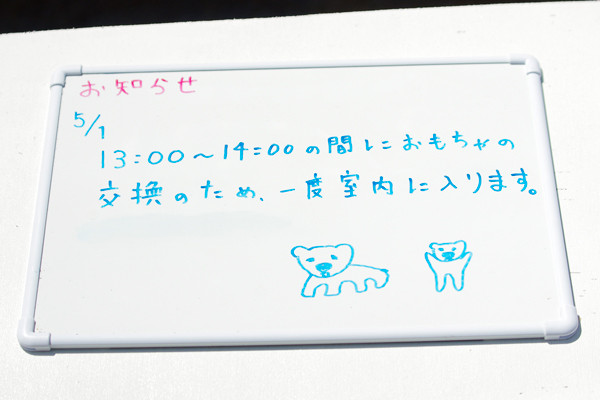 お知らせ
5/1
13:00～14:00の間におもちゃの
交換のため、一度室内に入ります。